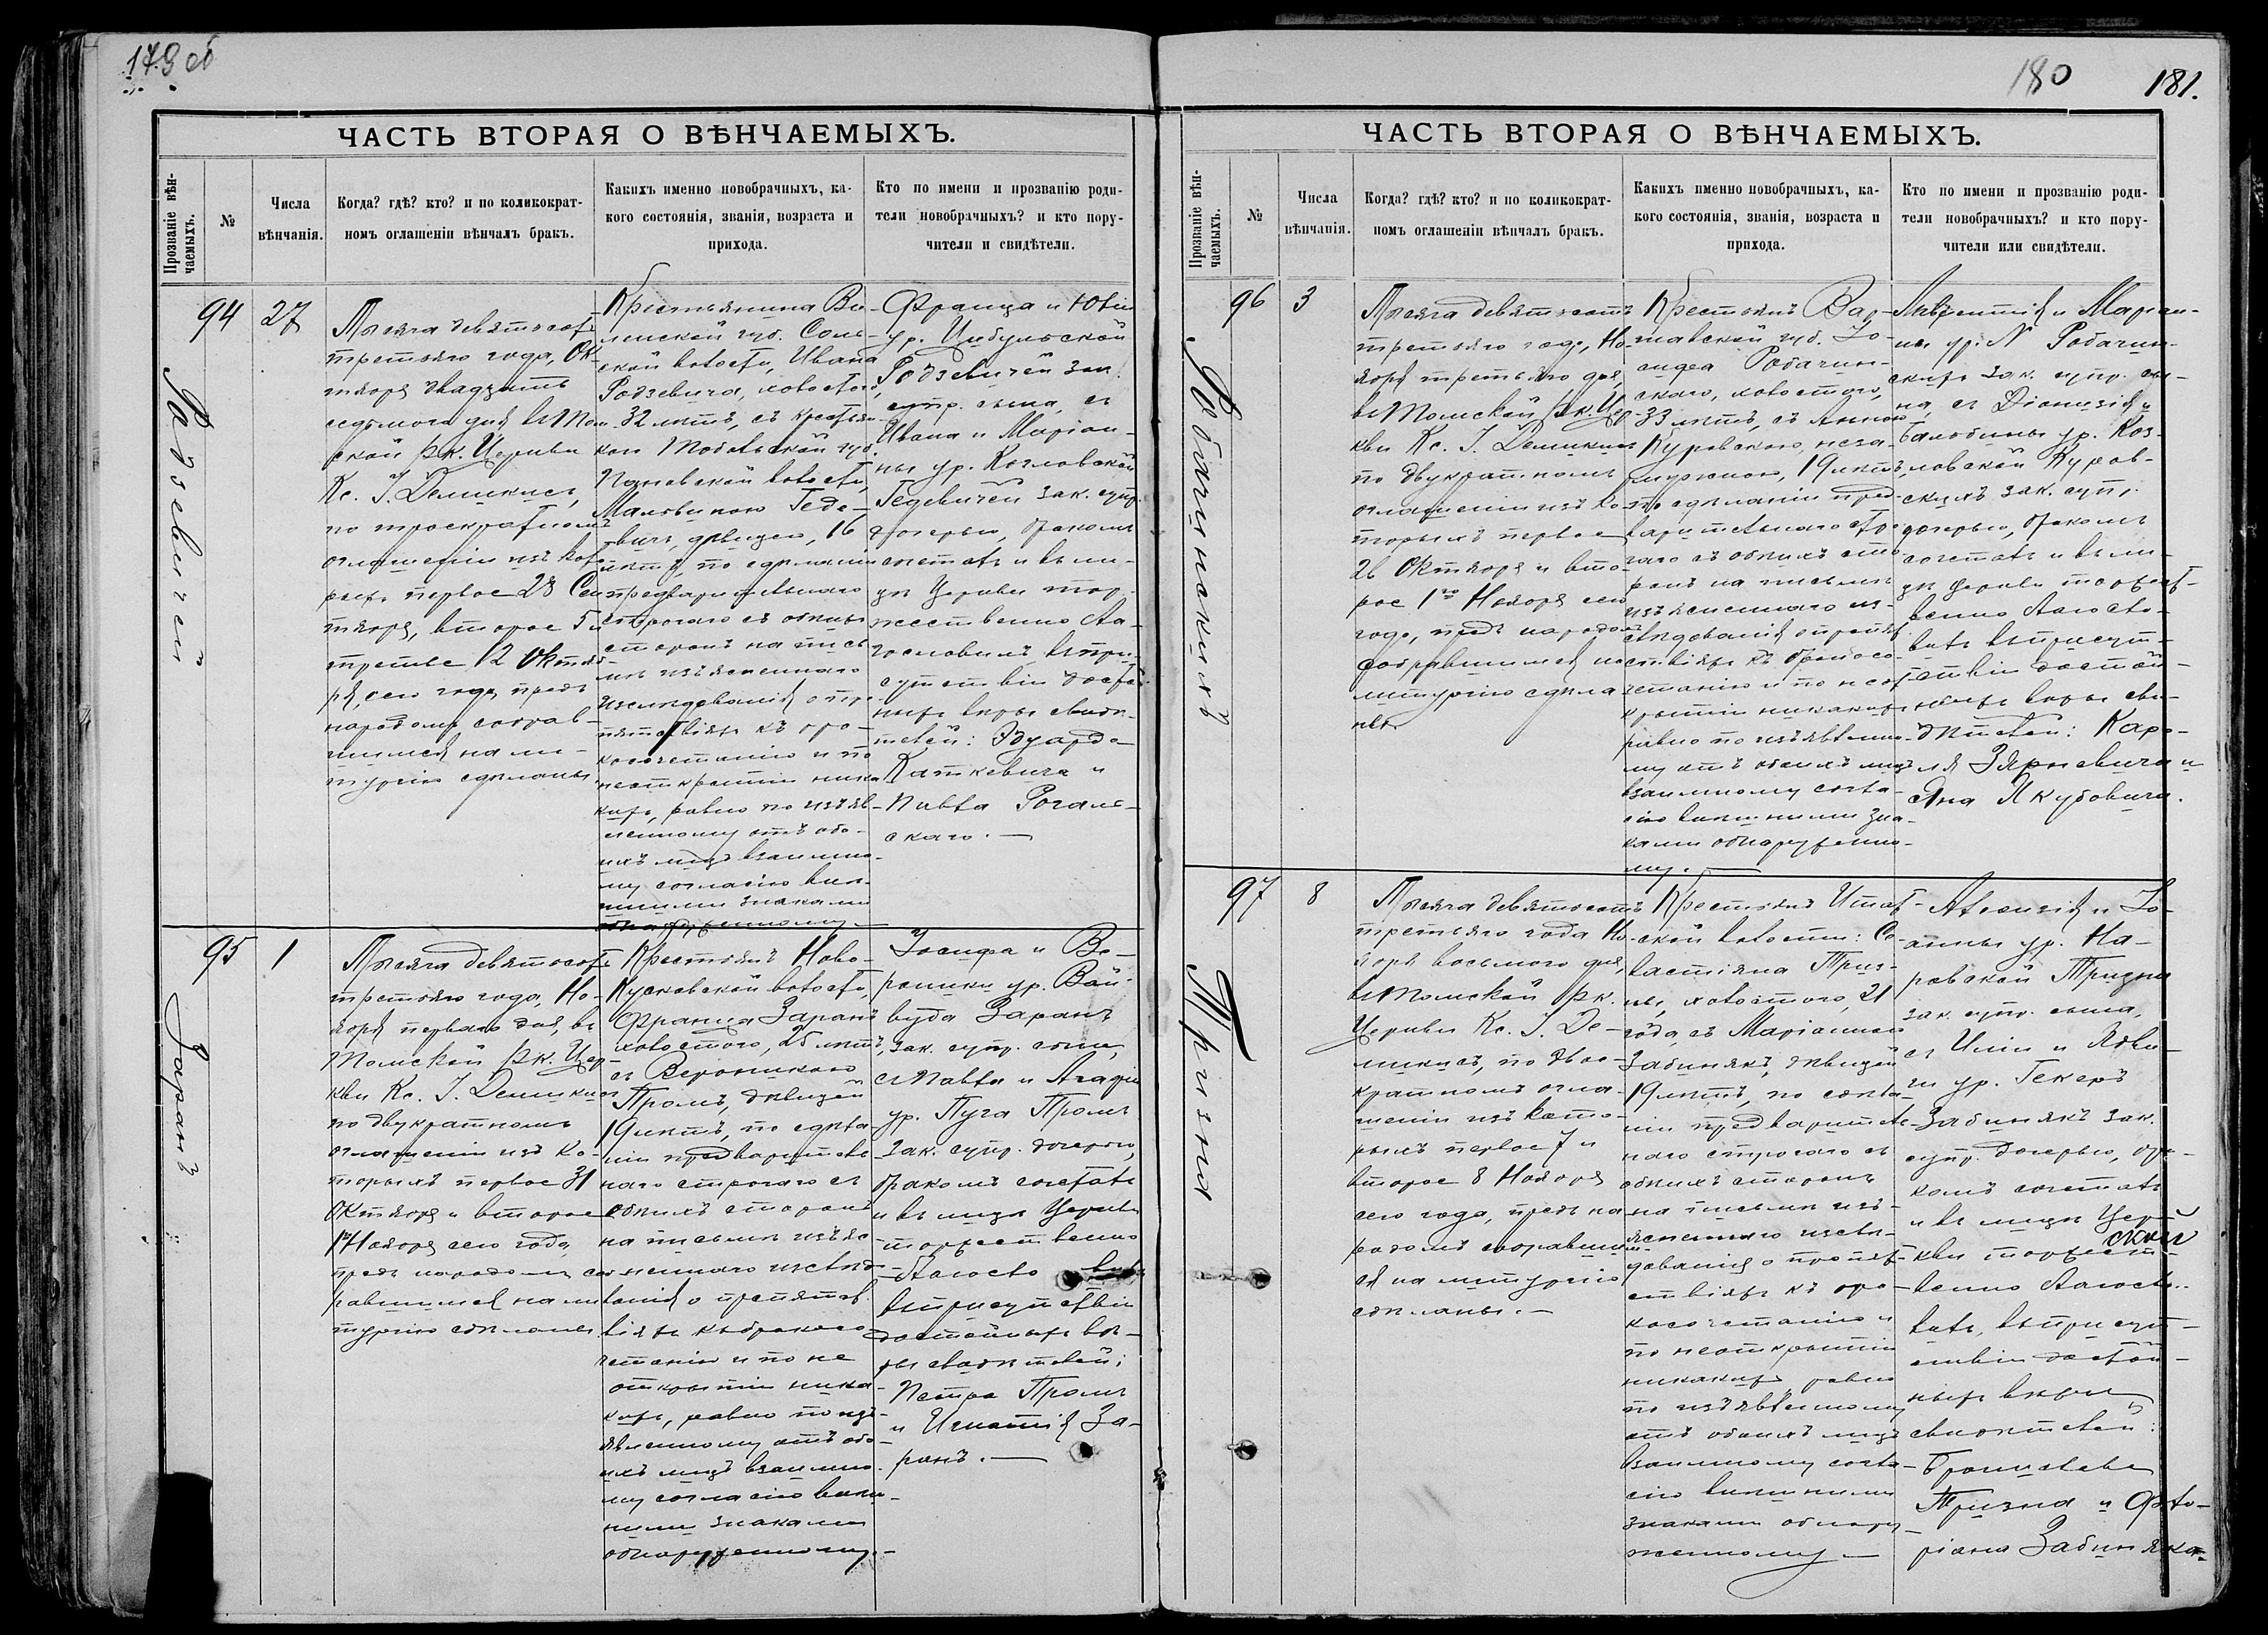 179 об
ЧАСТЬ ВТОРАЯ О ВѢНЧАЕМЫХЪ.
Прозваніе вѣн-
чаемыхъ.
№
Числа
вѣнчанія.
Когда? гдѣ? кто? и по коликократ-
номъ оглашеніи вѣнчалъ бракъ.
Какихъ именно новобрачныхъ, ка-
кого состоянія, званія, возраста и
прихода.
Кто по имени и прозванію роди-
тели новобрачныхъ? и кто пору-
чители и свидѣтели.
Родзевичей
94
27
Тысяча девятьсотъ
третьяго года, Ок-
тября двадцать
седьмого дня въ Том-
ской рк. Церкви
Кс. І. Демикисъ,
по троекратномъ
оглашеніи изъ кото-
рыхъ первое 28 Сен-
тября, второе 5 и
третье 12 Октяб-
ря, сего года предъ
народомъ собрав-
шимся на ли-
тургію сдѣланы
Крестьянина Ви-
ленской губ. Соль-
ской волости, Ивана
Родзевича, холостого,
32 лѣтъ, съ крестьян-
кой Тобольской губ.
волости,
Мальвиною Геде-
вичъ, дѣвицею, 16
лѣтъ, по сдѣланіи
предварительнаго
строгаго съ обѣихъ
сторонъ на пись-
мѣ изъясненнаго
изслѣдованія о пре-
пятствіяхъ къ бра-
косочетанію и по
неоткрытіи ника-
кихъ, равно по изъяв-
ленному отъ обо-
ихъ лицъ взаимно-
му согласію внѣ-
шними знаками
обнаруженному
Франца и Юліи
ур. Цибульской
Родзевичей зак.
супр. сына, съ
Ивана и Маріан-
ны ур. Козловской
Гедевичей зак. супр.
дочерью, бракомъ
сочеталъ и въ ли-
цѣ Церкви тор-
жественно бла-
гословилъ въ при-
сутствіи достой-
ныхъ вѣры свидѣ-
телей: Эдуарда
Каткевича и
Павла Рогаль-
скаго.
Заранъ
95
1
Тысяча девятьсотъ
третьяго года, Но-
ября перваго дня, въ
Томской рк. Цер-
кви Кс. І. Демикисъ
по двукратномъ
оглашеніи изъ ко-
торыхъ первое 31
Октября и второе
1го Ноября сего года,
предъ народомъ соб-
равшимся на ли-
тургію сдѣланы
Крестьянъ Ново-
Кусковской волости,
Франца Заранъ
холостого, 25 лѣтъ,
съ Вероникою
Промъ, дѣвицей
19 лѣтъ, по сдѣла-
ніи предваритель-
наго строгаго съ
обѣихъ сторонъ
на письмѣ изъяс-
неннаго изслѣдо-
ванія о препятст-
віяхъ къ бракосо-
четанію и по не
открытіи ника-
кихъ, равно по изъ-
явленному отъ обо-
ихъ лицъ взаимно-
му согласію внѣш-
ними знаками
обнаруженному.
Іосифа и Ве-
роники ур. Вой-
вуда Заранъ
зак. супр. сына,
съ Павла и Агафіи
ур. Пуча Промъ
зак. супр. дочерью,
бракомъ сочеталъ
и въ лицѣ Церкви
торжественно
благосло вилъ
въ присутствіи
достойныхъ вѣ-
ры свидѣтелей:
Петра Промъ
и Игнатія За-
ранъ.
180
181.
ЧАСТЬ ВТОРАЯ О ВѢНЧАЕМЫХЪ.
Прозваніе вѣн-
чаемыхъ.
№
Числа
вѣнчанія.
Когда? гдѣ? кто? и по коликократ-
номъ оглашеніи вѣнчалъ бракъ.
Какихъ именно новобрачныхъ, ка-
кого состоянія, званія, возраста и
прихода.
Кто по имени и прозванію роди-
тели новобрачныхъ? и кто пору-
чители или свидѣтели.
Робачинскихъ
96
3
Тысяча девятьсотъ
третьяго года, Но-
ября третьяго дня,
въ Томской рк. Цер-
кви Кс. І. Демикисъ
по двукратномъ
оглашеніи изъ ко-
торыхъ первое
26 Октября и вто-
рое 1го Ноября сего
года, предъ народомъ
собравшимся на
литургію сдѣла-
ны.
Крестьянъ Вар-
шавской губ. Іо-
сифа Робачин-
скаго, холостого,
33 лѣтъ, съ Анною
Куровскою, неза-
мужною, 19 лѣтъ,
по сдѣланіи пред-
варительнаго стро-
гаго съ обѣихъ сто-
ронъ на письмѣ
изъясненнаго из-
слѣдованія о препят-
ствіяхъ къ бракосо-
четанію и по неот-
крытіи никакихъ
равно по изъявленно-
му отъ обоихъ лицъ
взаимному согла-
сію внѣшними зна-
ками обнаруженно-
му.
Лаврентія и Маріан-
ны ур. N Робачин-
скихъ зак. супр. сы-
на, съ Діонизія и
Бальбины ур. Коз-
ловской Куров-
скихъ зак. супр.
дочерью, бракомъ
сочеталъ и въ ли-
цѣ Церкви торжест-
венно благосло-
вилъ въ присут-
ствіи достой-
ныхъ вѣры сви-
дѣтелей: Каро-
ля Зярневича и
Яна Якубовича.
Тризна
97
8
Тысяча девятьсотъ
третьяго года Но-
ября восьмого дня,
въ Томской рк.
Церкви Кс. І. Де-
микисъ, по двое-
кратномъ огла-
шеніи изъ кото-
рыхъ первое 7 и
второе 8 Ноября
сего года, предъ на-
родомъ собравшим-
ся на литургію
сдѣланы.
Крестьянъ Итат-
ской волости: Се-
вастіяна Триз-
ны, холостого, 21
года, съ Маріанною
Забинякъ, дѣвицей
19 лѣтъ, по сдѣла-
ніи предваритель-
наго строгаго съ
обѣихъ сторонъ
на письмѣ изъ-
ясненнаго изслѣ-
дованія о препят-
ствіяхъ къ бра-
косочетанію и
по неоткрытіи
никакихъ равно
по изъявленному
отъ обоихъ лицъ
взаимному согла-
сію внѣшними
знаками обнару-
женному
Алоизія и Іо-
анны ур. На-
ровской Тризна
зак. супр. сына,
съ Ильи и Ядви-
ги ур. Гекеръ
Забинякъ зак.
супр. дочерью, бра-
комъ сочеталъ
и въ лицѣ Цер-
кви торжест-
венно благосло-
вилъ, въ присут-
ствіи достой-
ныхъ вѣры
свидѣтелей:
Бронислава
Тризна и Фло-
ріана Забиняка.